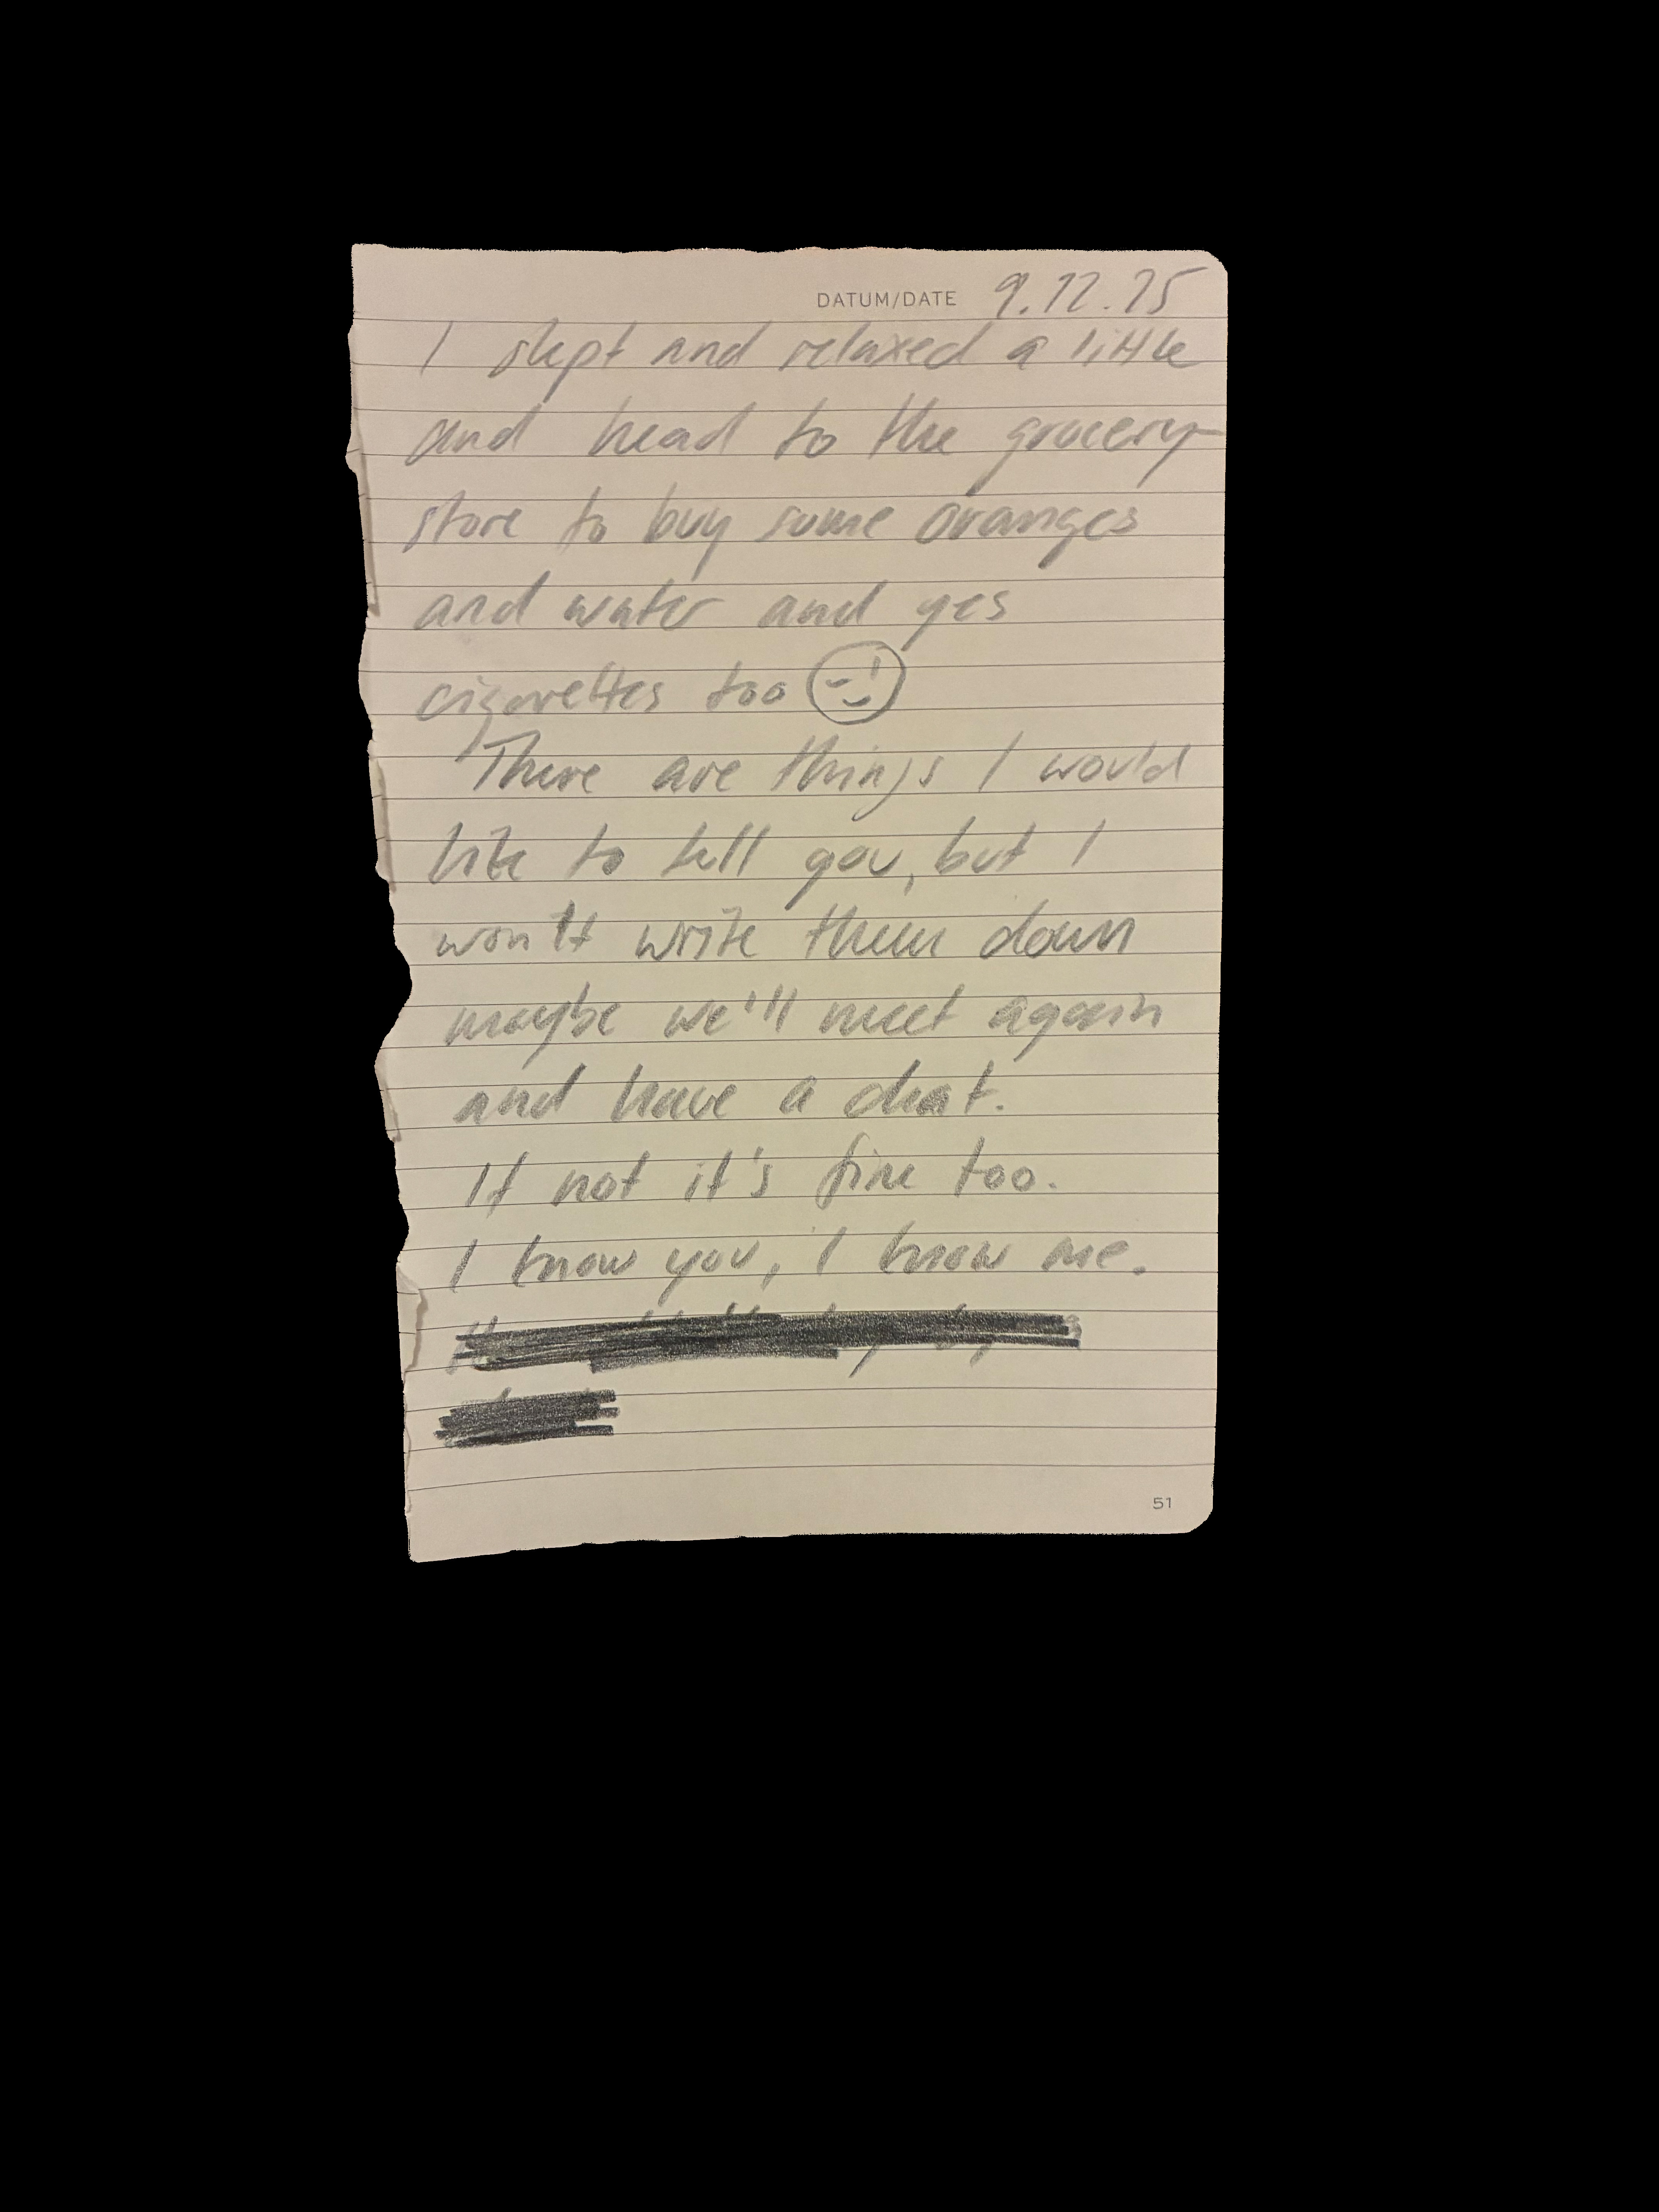 DATUM/DATE 9.12.25
I slept and relaxed a little
and head to the grocery-
store to buy some oranges
and water and yes
cigarettes too
There are things I would
like to tell you, but I
won't write them down
maybe we'll meet again
and have a chat.
If not it's fine too.
I know you, I know me.
51